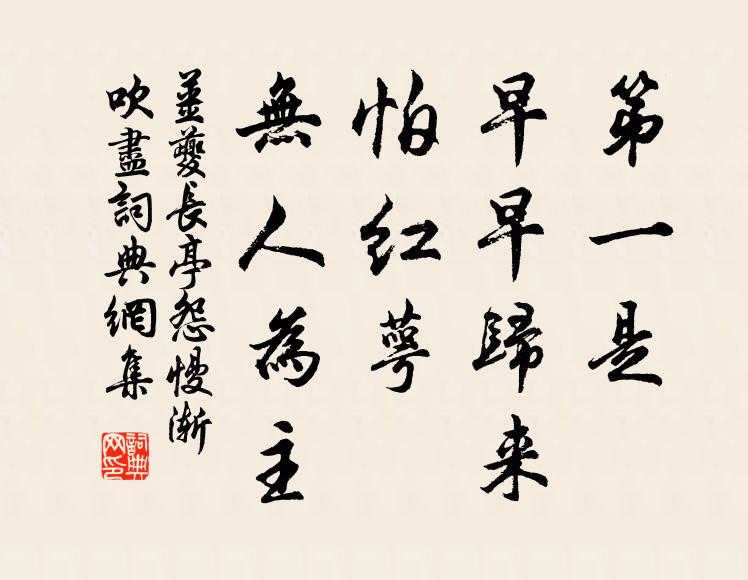 第一是
早早歸来
怕紅萼
無人為主
姜夔長亭怨慢漸
吹盡詞典網集
詞典网印